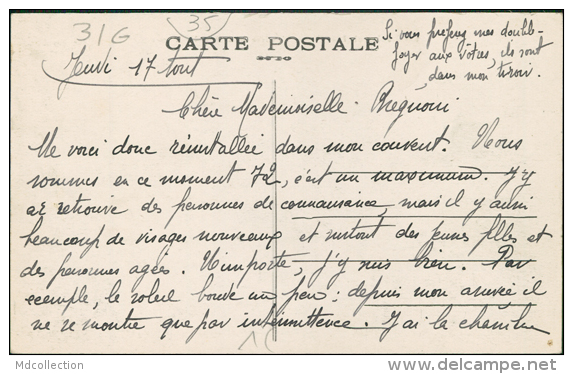 31G
35
CARTE POSTALE
Si vous préférez mes double-
foyer aux vôtres, ils sont
dans mon tiroir.
Jeudi 17 Aout
Chère Mademoiselle
Me voici donc réinstallée dans mon couvent. Nous
sommes en ce moment 72, c'est un maximum. J'y
ai retrouvé des personnes de connaissance, mais il y a aussi
beaucoup de visages nouveaux et surtout des jeunes filles et
des personnes agées. N'importe, j'y suis bien. Par
exemple, le soleil boude un peu ; depuis mon arrivée il
ne se montre que par intermittence. J'ai la chambre
Mdcollection
delcampe.net